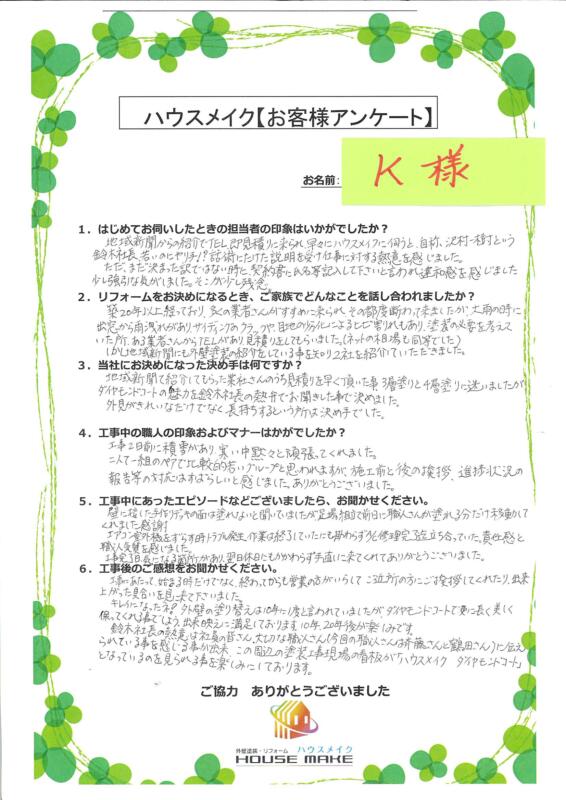 ハウスメイク【お客様アンケート】
お名前:
K 様
1．はじめてお伺いしたときの担当者の印象はいかがでしたか？
地域新聞からの紹介でTEL、即見積りに来られ、早々にハウスメイクに伺うと、自称、沢村一樹という
鈴木社長、若いのにヤリ手!? 話術にたけた説明を受け仕事に対する熱意を感じました。
ただ、まだ決まった訳ではない時に契約書に氏名等記入して下さいと言われ違和感を感じました
少し強引な気がしました。そこが少し残念。
2．リフォームをお決めになるとき、ご家族でどんなことを話し合われましたか？
築20年以上経っており、多くの業者さんがすすめに来られ、その都度断わって来ましたが、大雨の時に
出窓から雨洩れがありサイディングのクラックや目地の劣化によるヒビ割れもあり、塗装の必要を考えて
いた所、ある業者さんからTELがあり見積りをしてもらいました。(ネットの相場も同等でした)
しかし地域新聞にも外壁塗装の紹介をしている事を知り2社を紹介していただきました。
3．当社にお決めになった決め手は何ですか？
地域新聞で紹介してもらった某社さんのうち見積りを早く頂いた事、3層塗りと4層塗りに迷いましたが
ダイヤモンドコートの魅力を鈴木社長の熱弁でお聞きした事で決めました。
外見がきれいなだけでなく長持ちするという所は決め手でした。
4．工事中の職人の印象およびマナーはいかがでしたか？
工事2日前に積雪があり、寒い中黙々と頑張ってくれました。
二人で一組のペアで比較的若いグループと思われますが、施工前と後の挨拶、進捗状況の
報告等の対応はすばらしいと感じました。ありがとうございました。
5．工事中にあったエピソードなどございましたら、お聞かせください。
壁に接した手作りデッキの面は塗れないと聞いていましたが足場組立て前日に職人さんが塗れる分だけ移動して
くれました感謝!
エアコン室外機をずらす時トラブル発生、作業は終了していたにも拘わらず修理完了迄立ち会っていた。責任感と
職人気質を感じました。
工事完了日、気になる箇所があり、翌日休日にもかかわらず手直しに来てくれてありがとうございました。
6．工事後のご感想をお聞かせください。
工事にあたって、始まる時だけでなく、終わってからも営業の方がいらしてご近所の方にご挨拶してくれたり、出来
上がった具合いを見に来て下さいました。
キレイになったネ? 外壁の塗り替えは10年に1度と言われていましたがダイヤモンドコートで更に長く美しく
保ってくれる事でしょう。出来映えに満足しております。10年、20年後が楽しみです。
鈴木社長の熱意は社員の皆さん、大切な職人さん(今回の職人さんは斉藤さんと鶴田さん)に伝え
られている事を感じる事が出来、この周辺の塗装工事現場の看板が「ハウスメイク ダイヤモンドコート」
となっているのを見られる事を楽しみにしております。
ご協力　ありがとうございました
外壁塗装・リフォーム ハウスメイク
HOUSE MAKE